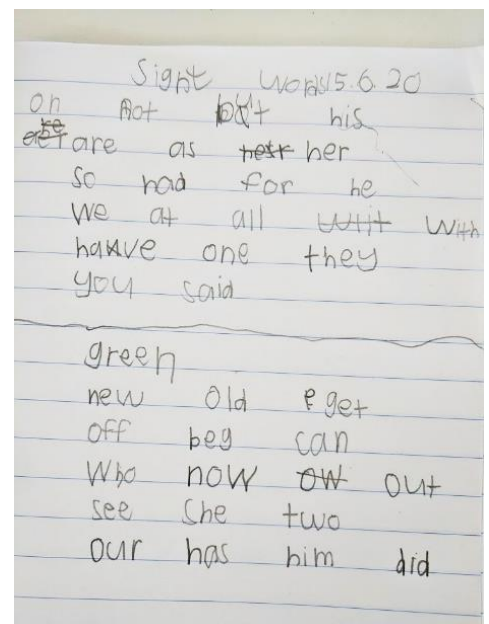 Sight Words 5.6.20
on not but his
are as her
so had for he
we at all with
have one they
you said
green
new old get
off beg can
who now out
see she two
our has him did